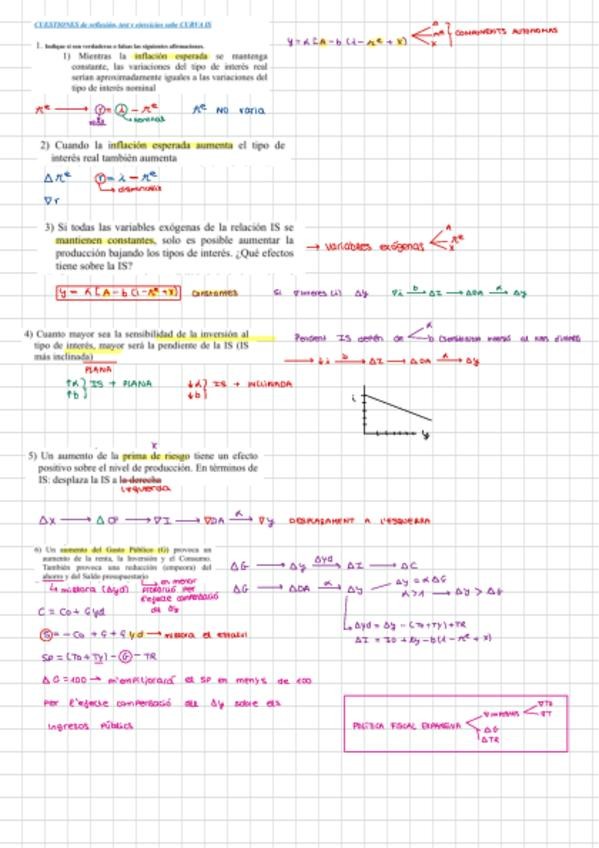 CUESTIONES de reflexión, test y ejercicios sobre CURVA IS
y = α [A - b (i - πe + x)
A
πe
x
COMPONENTS AUTONOMS
1. Indique si son verdaderas o falsas las siguientes afirmaciones.
1) Mientras la inflación esperada se mantenga
constante, las variaciones del tipo de interés real
serían aproximadamente iguales a las variaciones del
tipo de interés nominal
πe → r = i - πe πe NO varia
real
nominal
2) Cuando la inflación esperada aumenta el tipo de
interés real también aumenta
Δπe r = i - πe
disminueix
∇r
3) Si todas las variables exógenas de la relación IS se
mantienen constantes, solo es posible aumentar la
producción bajando los tipos de interés. ¿Qué efectos
tiene sobre la IS?
→ variables exógenas
A
πe
x
y = α [A - b (i - πe + x)] Constantes Si ∇interes (i) Δy ∇i b→ ΔI → ΔDA α→ Δy
4) Cuanto mayor sea la sensibilidad de la inversión al
tipo de interés, mayor será la pendiente de la IS (IS
más inclinada)
PLANA
Pendent IS depèn de
α
b
→ ↓i b→ ΔI → ΔDA α→ Δy
↑α
↑b
} IS + PLANA
↓α
↓b
} IS + INCLINADA
i
y
x
5) Un aumento de la prima de riesgo tiene un efecto
positivo sobre el nivel de producción. En términos de
IS: desplaza la IS a la derecha
izquierda
Δx → ΔCP → ∇I → ∇DA α→ ∇y DESPLAÇAMENT A L'ESQUERRA
6) Un aumento del Gasto Público (G) provoca un
aumento de la renta, la Inversión y el Consumo.
También provoca una reducción (empeora) del
ahorro y del Saldo presupuestario
ΔG → Δy Δyd→ ΔI → ΔC
↳ millora (Δyd)
→ en menor
proporció per
l'efecte compensació
de Δy
ΔG → ΔDA α→ Δy
Δy = αΔG
α>1 → Δy > ΔG
C = Co + C yd
Δyd = Δy - (To + Ty) + TR
ΔI = Io + ky - b (i - πe + x)
S = - Co + yd → millora el estalvi
SP = (To + Ty) - G - TR
ΔG = 100 → m'empitjorarà el SP en menys de 100
per l'efecte compensació del Δy sobre els
ingresos públics
POLÍTICA FISCAL EXPANSIVA
∇impostos
∇To
∇T
ΔG
ΔTR